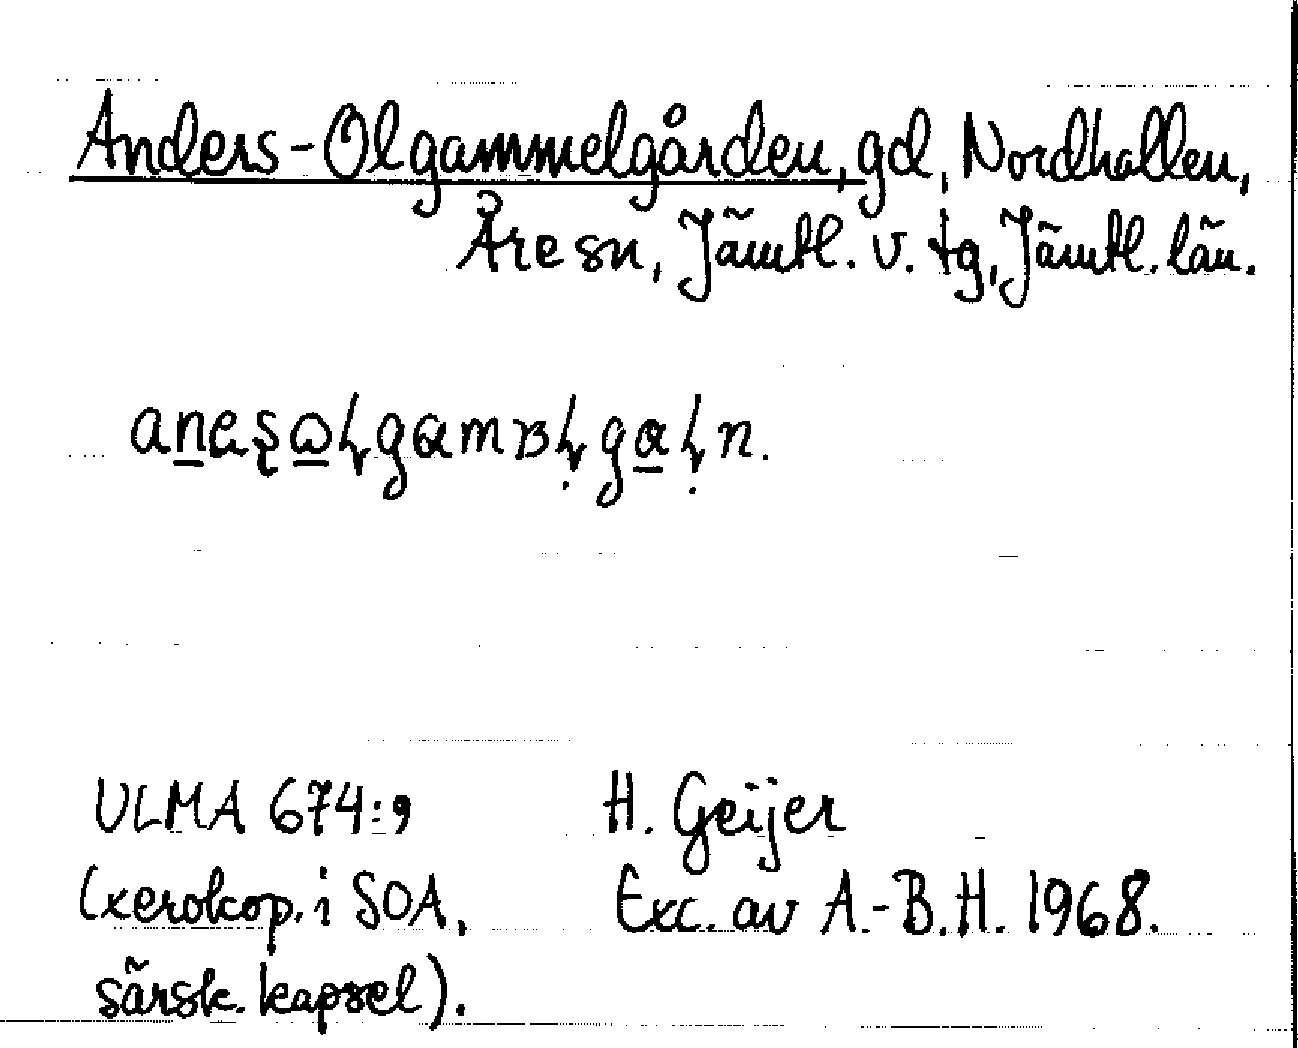 Anders-Olgammelgården, gd, Nordhallen,
Åre sn, Jämtl. v. tg, Jämtl. län.
ULMA 674:9
(xerokop. i SOA,
särsk. kapsel).
H. Geijer
Exc. av A.-B.H. 1968.